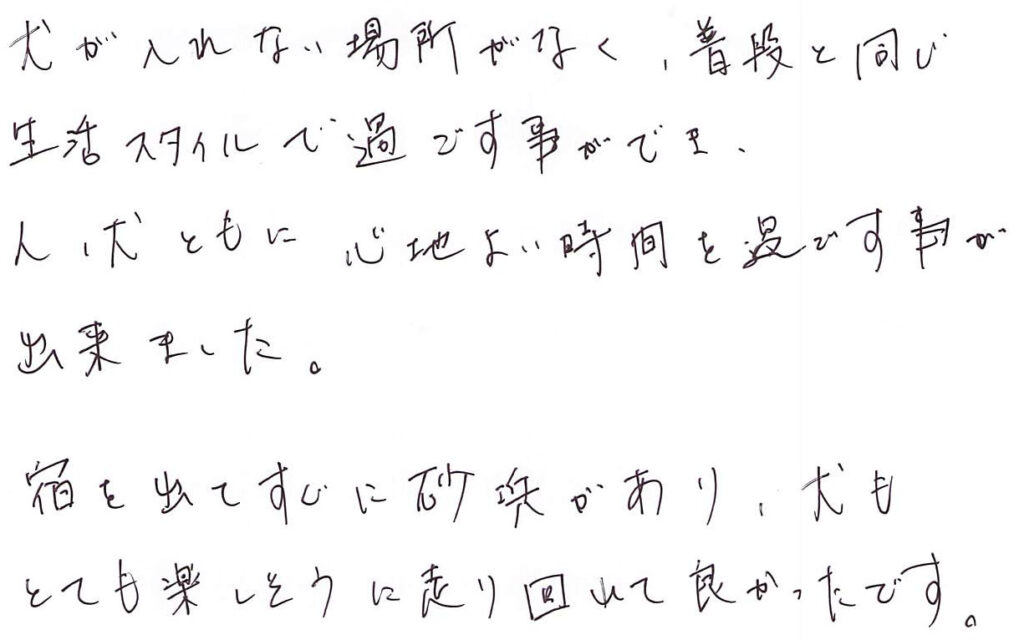 犬が入れない場所がなく、普段と同じ
生活スタイルで過ごす事ができ、
人、犬ともに心地よい時間を過ごす事が
出来ました。
宿を出てすぐに砂浜があり、犬も
とても楽しそうに走り回れて良かったです。